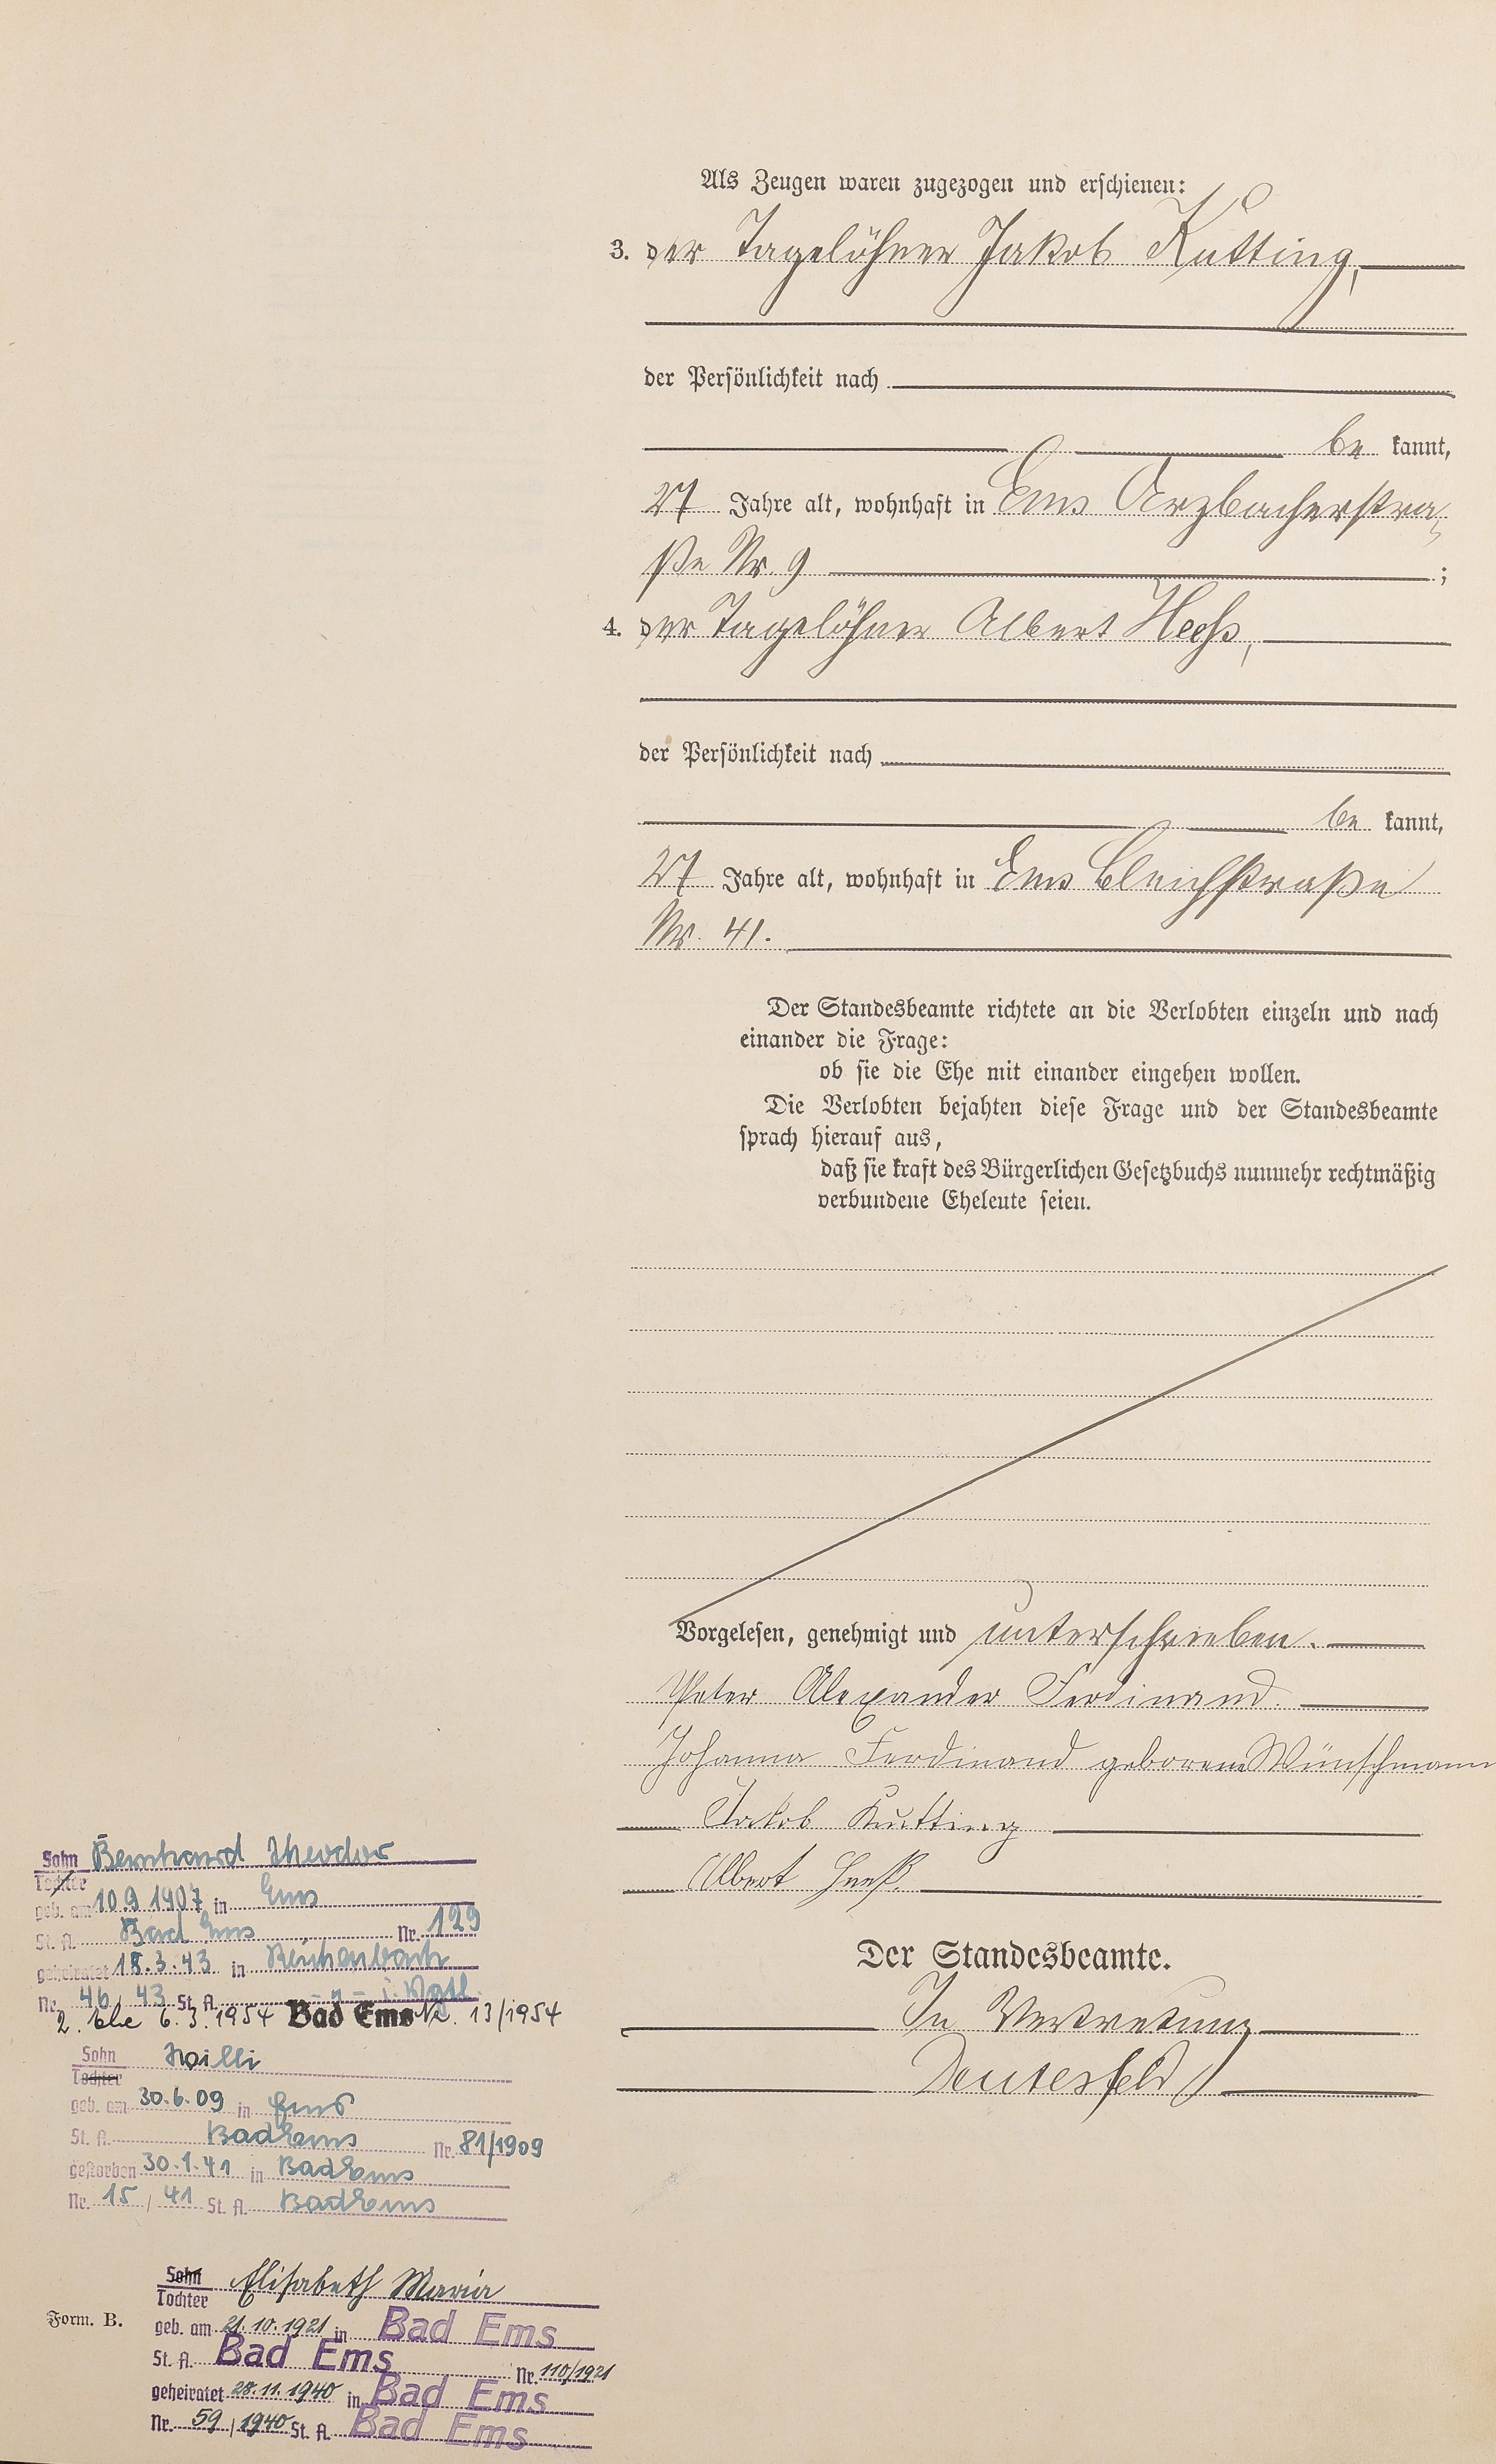 Als Zeugen waren zugezogen und erschienen:
3. der Tagelöhner Jakob Kutting,
der Persönlichkeit nach
be kannt,
27 Jahre alt, wohnhaft in Ems Arzbacherstra-
ße Nr. 9 ;
4. der Tagelöhner Albert Heeß,
der Persönlichkeit nach
be kannt,
27 Jahre alt, wohnhaft in Ems Bleichstraße
Nr. 41.
Der Standesbeamte richtete an die Verlobten einzeln und nach
einander die Frage:
ob sie die Ehe mit einander eingehen wollen.
Die Verlobten bejahten diese Frage und der Standesbeamte
sprach hierauf aus,
daß sie kraft des Bürgerlichen Gesetzbuchs nunmehr rechtmäßig
verbundene Eheleute seien.
Vorgelesen, genehmigt und unterschrieben.
Peter Alexander Ferdinand.
Johanna Ferdinand geborene Wünschmann
Jakob Kutting
Albert Heeß.
Der Standesbeamte.
In Vertretung
Deutesfeld
Sohn Bernhard Theodor
Tochter
geb. am 10.9.1907 in Ems
St. A. Bad Ems Nr. 129
geheiratet 18.3.43 in Reichenbach
Nr. 46/43 St. A. - " - i. Vogtl.
2. Ehe 6.3.1954 Bad Ems Nr. 13/1954
Sohn Willi
Tochter
geb. am 30.6.09 in Ems
St. A. Bad Ems Nr. 81/1909
gestorben 30.1.41 in Bad Ems
Nr. 15 / 41 St. A. Bad Ems
Sohn Elisabeth Maria
Tochter
Form. B.
geb. am 21.10.1921 in Bad Ems
St. A. Bad Ems Nr. 110/1921
geheiratet 28.11.1940 in Bad Ems
Nr. 59 / 1940 St. A. Bad Ems